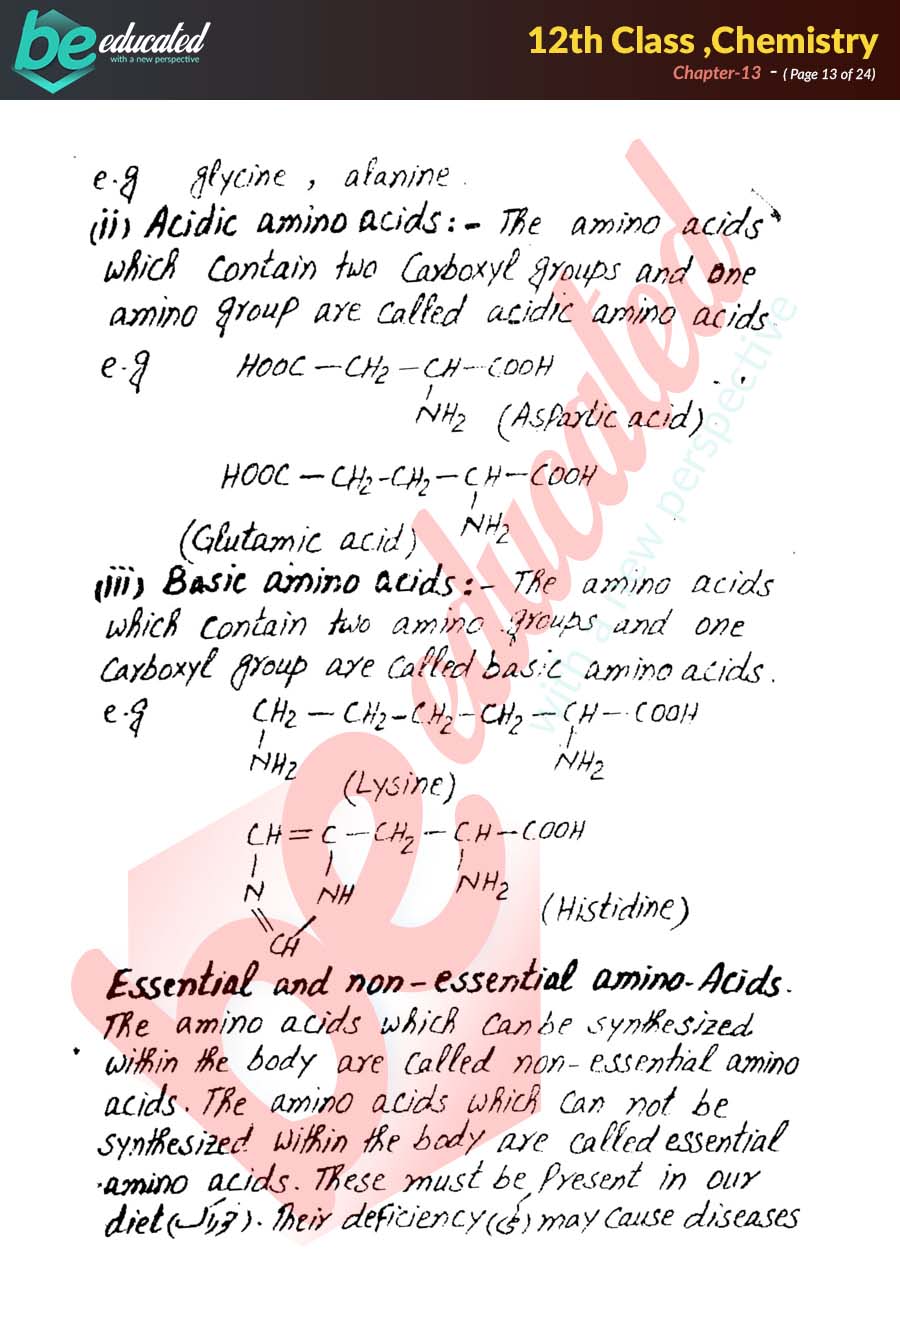 be educated
with a new perspective
12th Class ,Chemistry
Chapter-13 - ( Page 13 of 24)
e.g glycine , alanine.
(ii) Acidic amino acids:- The amino acids
which contain two carboxyl groups and one
amino group are called acidic amino acids.
e.g HOOC – CH2 – CH – COOH
NH2 (Aspartic acid)
HOOC – CH2 - CH2 – CH – COOH
NH2
(Glutamic acid)
(iii) Basic amino acids:- The amino acids
which contain two amino groups and one
carboxyl group are called basic amino acids.
e.g CH2 – CH2 – CH2 – CH2 – CH – COOH
NH2 NH2
(Lysine)
CH = C – CH2 – CH – COOH
N NH NH2
(Histidine)
CH
Essential and non-essential amino-Acids.
The amino acids which can be synthesized
within the body are called non-essential amino
acids. The amino acids which can not be
synthesized within the body are called essential
amino acids. These must be present in our
diet (خوراک). Their deficiency (کمی) may cause diseases
be educated
with a new perspective